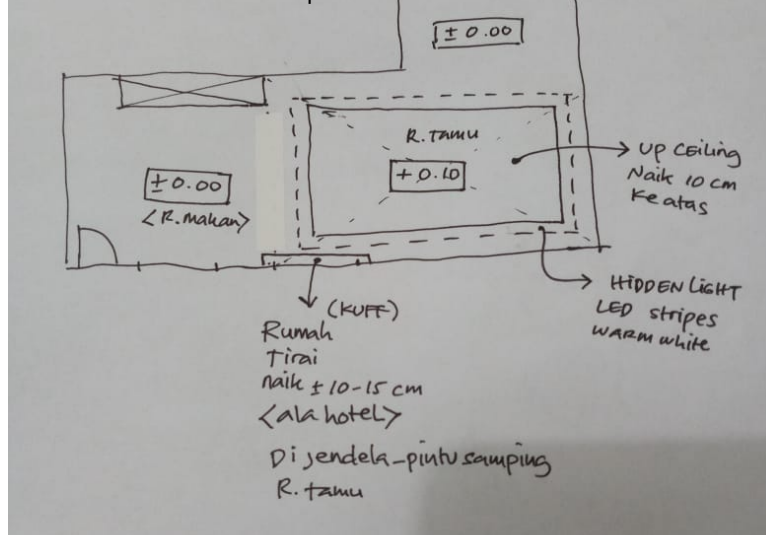 ± 0.00
R. tamu
+ 0.10
UP CEILING
Naik 10 cm
Ke atas
± 0.00
<R. makan>
HIDDEN LIGHT
LED stripes
WARM white
(KUFF)
Rumah
Tirai
naik ± 10-15 cm
<ala hotel>
Di jendela-pintu samping
R. tamu